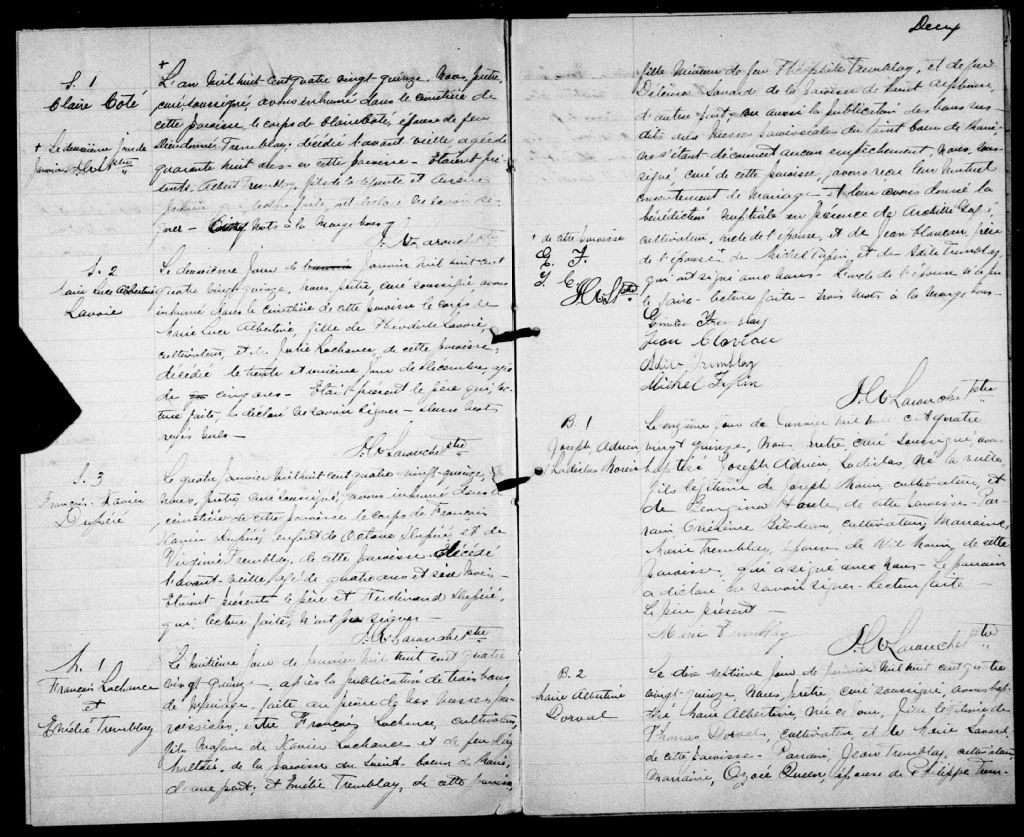 S. 1
Claire Coté
+ Le deuxième jour de
Janvier
+
L'an mil huit cent quatre vingt quinze, Nous, prêtre,
curé, soussigné, avons inhumé dans le cimetière de
cette paroisse, le corps de Claire Coté, épouse de feu
Dieudonné Tremblay, décédée l'avant veille, agée de
quarante huit ans, en cette paroisse - Etaient pré-
sents, Albert Tremblay, fils de la défunte et
qui, lecture faite, ont déclaré ne savoir si-
gner - mots à la marge bons
J. A Larouche ptre
S. 2
Marie Luce Albertine
Lavoie
Le deuxième jour de Janvier mil huit cent
quatre vingt quinze, nous, prêtre curé soussigné avons
inhumé dans le cimetière de cette paroisse le corps de
Marie Luce Albertine, fille de Théodule Lavoie,
cultivateur, et de Julie Lachance, de cette paroisse,
décédée le trente et unième jour de décembre, agée
de cinq ans - Etait présent le père qui, lec-
ture faite, a déclaré ne savoir signer - deux mots
rayés nuls -
J. A Larouche ptre
S. 3
François-Xavier
Dufséré
Le quatre janvier mil huit cent quatre-vingt-quinze,
Nous, prêtre curé soussigné, avons inhumé dans le
cimetière de cette paroisse le corps de François
Xavier, enfant de Octave et de
Virginie Tremblay, de cette paroisse décédé
l'avant-veille, agé de quatre ans et mois -
Etaient présents le père et Ferdinand
qui, lecture faite, n'ont pas signer -
J. A Larouche ptre
M. 1
François Lachance
et
Emélie Tremblay
Le huitième jour de Janvier mil huit cent quatre
vingt-quinze, après la publication de trois bans
de mariage, faite au prône de nos messes pa-
roissiales, entre François Lachance, cultivateur,
fils majeur de Xavier Lachance et de feu
Maltais, de la paroisse du Saint-Coeur de Marie,
d'une part; et Emélie Tremblay, de cette paroisse,
Deux
fille mineure de feu Théophile Tremblay, et de feu
Délima Savard de la paroisse de Saint Alphonse,
d'autre part; vu aussi la publication des bans sus-
dits aux messes paroissiales du Saint Coeur de Marie
ne s'étant découvert aucun empêchement, Nous, sous-
signé curé de cette paroisse, avons reçu leur mutuel
consentement de Mariage et leur avons donné la
bénédiction nuptiale en présence de
cultivateur, oncle de l'épouse, et de Jean
de l'épouse, de Michel, et de Adèle Tremblay,
qui ont signé avec nous. L'oncle de l'épouse n'a pu
le faire - lecture faite - trois mots à la marge bons -
+ de cette paroisse
E. F.
J. C
J A L ptre
Emélie Tremblay
Jean
Adèle Tremblay
Michel
J. A Larouche ptre
B. 1
Joseph Adrien
Ladislas Morin
Le onzième jour de Janvier mil huit cent quatre
vingt quinze, Nous prêtre curé soussigné, avons
baptisé Joseph Adrien, Ladislas, né la veille,
fils légitime de Joseph Morin, cultivateur, et
de Georgina Houle, de cette paroisse - Par-
rain Onésime, cultivateur; Marraine,
Marie Tremblay, épouse de Morin, de cette
paroisse, qui a signé avec nous - Le parrain
a déclaré ne savoir signer - Lecture faite -
Le père présent -
Marie Tremblay
J. A Larouche ptre
B. 2
Marie Albertine
Dorval
Le dix septième jour de Janvier mil huit cent quatre
vingt-quinze, Nous, prêtre curé soussigné, avons bap-
tisé Marie Albertine, née ce jour, fille légitime de
Thomas Dorval, cultivateur et de Marie Savard
de cette paroisse - Parrain, Jean Tremblay, cultivateur,
Marraine, Queen, épouse de Philippe Trem-